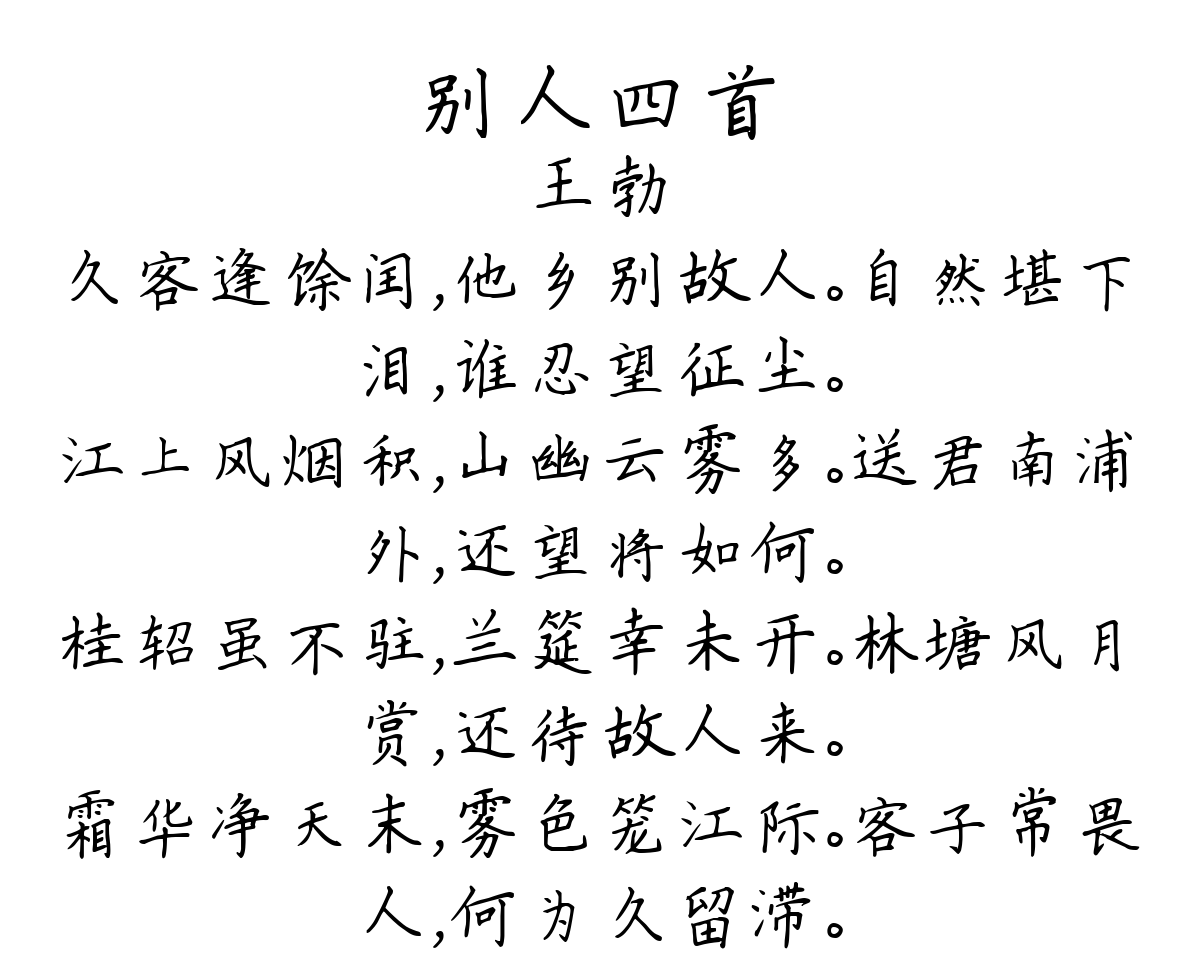 别人四首
王勃
久客逢馀闰,他乡别故人。自然堪下
泪,谁忍望征尘。
江上风烟积,山幽云雾多。送君南浦
外,还望将如何。
桂轺虽不驻,兰筵幸未开。林塘风月
赏,还待故人来。
霜华净天末,雾色笼江际。客子常畏
人,何为久留滞。